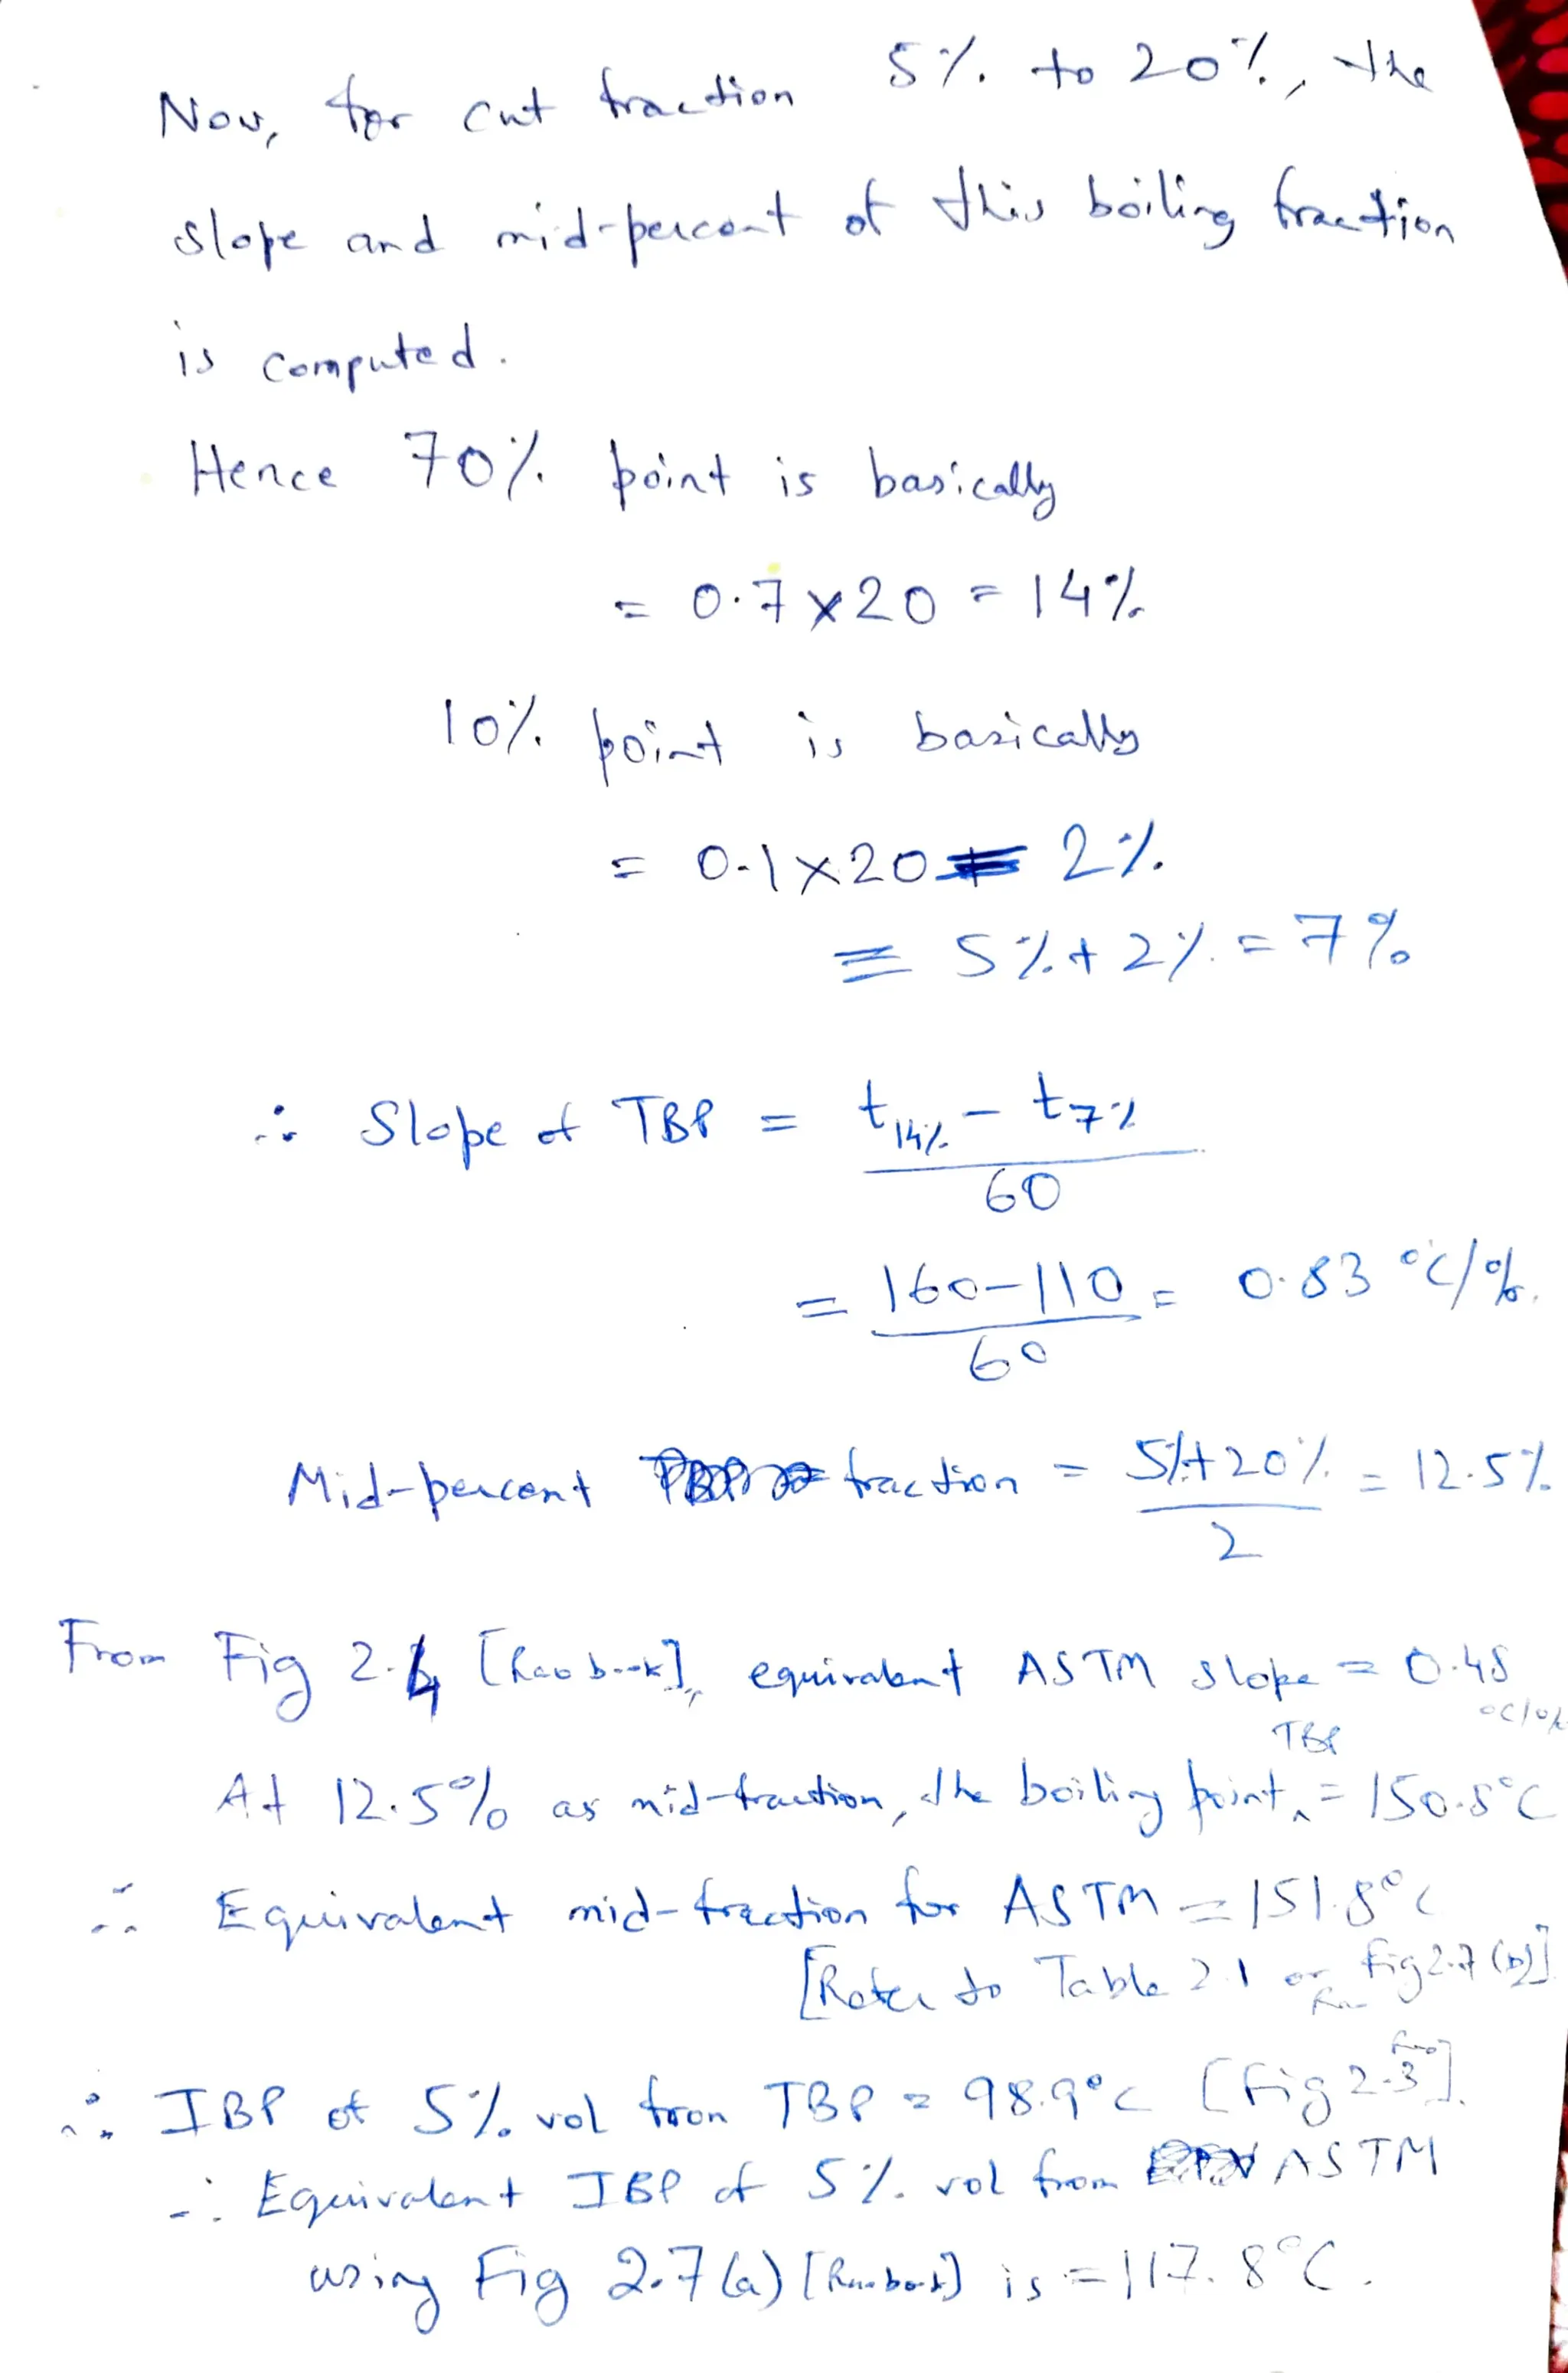 Now, for cut fraction 5% to 20%, the
slope and mid-percent of this boiling fraction
is computed.
Hence 70% point is basically
= 0.7 x 20 = 14%
10% point is basically
= 0.1 x 20 = 2%
= 5% + 2% = 7%
∴ Slope of TBP = t14% - t7%
60
= 160-110 = 0.83 °C/%.
60
Mid-percent fraction = 5%+20% = 12.5%
2
From Fig 2.4 [Rao book], equivalent ASTM slope = 0.48 °C/%
At 12.5% as mid-fraction, the boiling point, TBP = 150.5°C
∴ Equivalent mid-fraction for ASTM = 151.8°C
[Refer to Table 2.1 or Fig 2.7 (b)]
∴ IBP of 5% vol from TBP = 98.9°C [Fig 2.3].
∴ Equivalent IBP of 5% vol from ASTM
using Fig 2.7(a) [Rao book] is = 117.8°C.